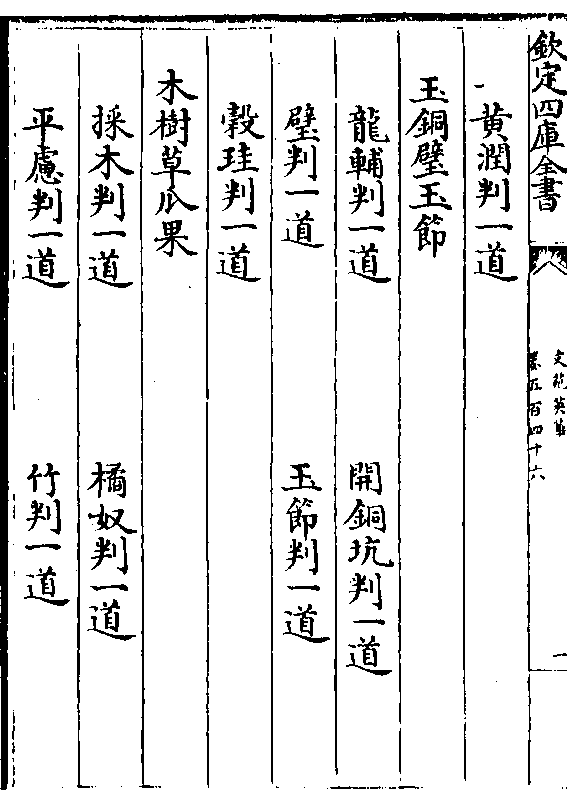 欽定四庫全書
文苑英華
卷五百四十六
一
黃潤判一道
玉銅璧玉節
龍輔判一道　開銅坑判一道
璧判一道　玉節判一道
穀珪判一道
木樹草瓜果
採木判一道　橘奴判一道
平慮判一道　竹判一道